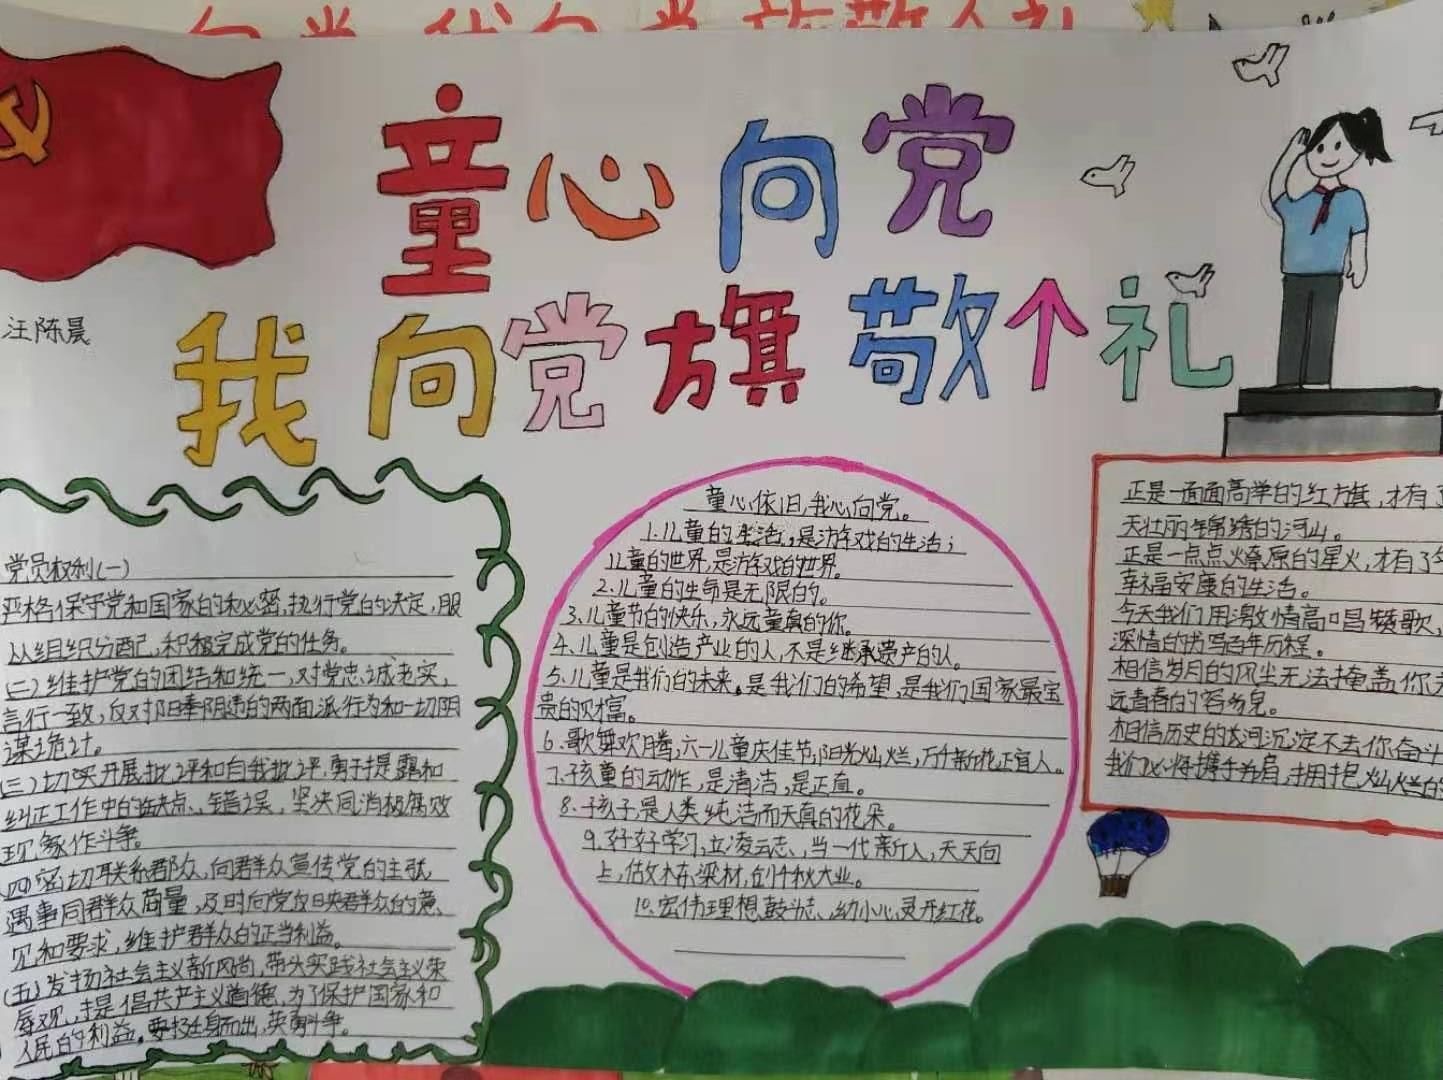 童心向党
我向党旗敬个礼
汪陈晨
党员权利(一)
严格保守党和国家的秘密,执行党的决定,服
从组织分配,积极完成党的任务。
(二)维护党的团结和统一,对党忠诚老实,
言行一致,反对阳奉阴违的两面派行为和一切阴
谋诡计。
(三)切实开展批评和自我批评,勇于揭露和
纠正工作中的缺点、错误,坚决同消极腐败
现象作斗争。
(四)密切联系群众,向群众宣传党的主张
遇事同群众商量,及时向党反映群众的意
见和要求,维护群众的正当利益。
(五)发扬社会主义新风尚,带头实践社会主义荣
辱观,提倡共产主义道德,为了保护国家和
人民的利益。要挺身而出,英勇斗争。
童心依旧,我心向党。
1.儿童的生活,是游戏的生活;
儿童的世界,是游戏的世界。
2.儿童的生命是无限的。
3.儿童节的快乐,永远童真的你。
4.儿童是创造产业的人,不是继承遗产的人。
5.儿童是我们的未来。是我们的希望,是我们国家最宝
贵的财富。
6.歌舞欢腾,六一儿童庆佳节,阳光灿烂,万千新花正宜人。
7.孩童的动作,是清洁,是正直。
8.孩子,是人类纯洁而天真的花朵。
9.好好学习,立凌云志、当一代新人,天天向
上,做栋梁材,创千秋大业。
10.宏伟理想鼓斗志、幼小心灵开红花。
正是一面面高举的红方旗,才有了
天壮丽锦绣的河山。
正是一点点火燎原的星火,才有了今
幸福安康的生活。
今天我们用激情高唱赞歌,
深情的书写百年历程。
相信岁月的风尘无法掩盖你永
远青春的容颜。
相信历史的长河沉淀不去你奋斗
我们必将携手并肩,拥抱灿烂的